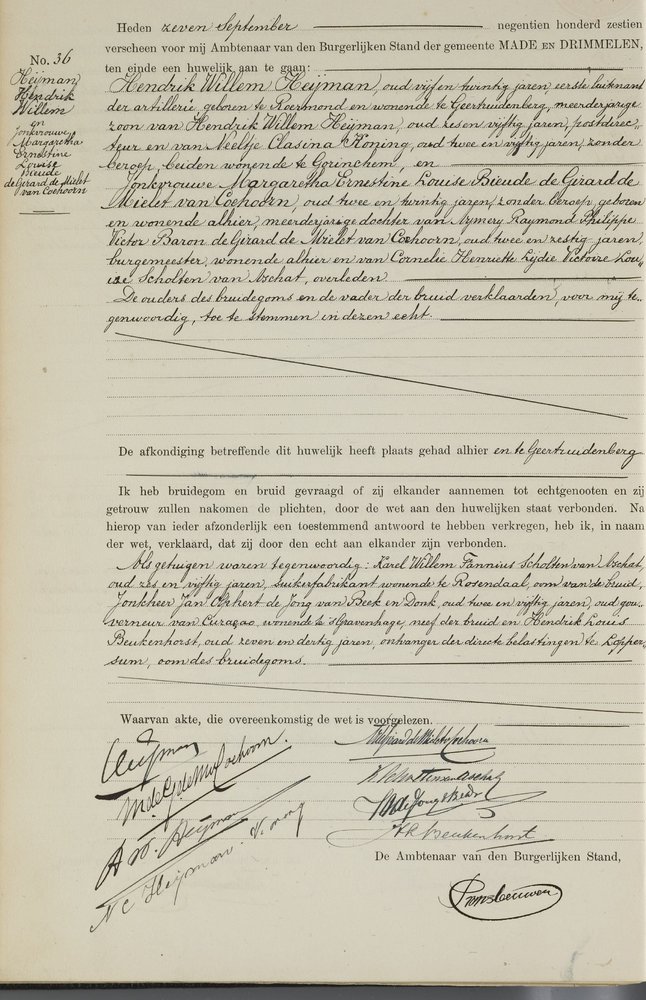 No. 36
Heijman
Hendrik
Willem
en
Jonkvrouwe
Margaretha
Ernestine
Louise
Bieude
de Girard de Mielet
van Coehoorn
Heden zeven September negentien honderd zestien
verscheen voor mij Ambtenaar van den Burgerlijken Stand der gemeente MADE EN DRIMMELEN,
ten einde een huwelijk aan te gaan:
Hendrik Willem Heijman, oud vijf en twintig jaren, eerste luitenant
der artillerie, geboren te Roermond en wonende te Geertruidenberg, meerderjarige
zoon van Hendrik Willem Heijman, oud zes en vijftig jaren, postdirec„
teur en van Neeltje Clasina Koning, oud twee en vijftig jaren, zonder
beroep, beiden wonende te Gorinchem, en
Jonkvrouwe Margaretha Ernestine Louise Bieude de Girard de
Mielet van Coehoorn, oud twee en twintig jaren, zonder beroep, geboren
en wonende alhier, meerderjarige dochter van Aymery Raymond Philippe
Victor Baron de Girard de Mielet van Coehoorn, oud twee en zestig jaren,
burgemeester, wonende alhier en van Cornelie Henriette Lydie Victoire Lou„
ise Scholten van Aschat, overleden.
De ouders des bruidegoms en de vader der bruid verklaarden, voor mij te„
genwoordig, toe te stemmen in dezen echt.
De afkondiging betreffende dit huwelijk heeft plaats gehad alhier en te Geertruidenberg
Ik heb bruidegom en bruid gevraagd of zij elkander aannemen tot echtgenooten en zij
getrouw zullen nakomen de plichten, door de wet aan den huwelijken staat verbonden. Na
hierop van ieder afzonderlijk een toestemmend antwoord te hebben verkregen, heb ik, in naam
der wet, verklaard, dat zij door den echt aan elkander zijn verbonden.
Als getuigen waren tegenwoordig: Karel Willem Fannius Scholten van Aschat,
oud zes en vijftig jaren, suikerfabrikant wonende te Rosendaal, oom van de bruid,
Jonkheer Jan Olphert de Jong van Beek en Donk, oud twee en vijftig jaren, oud gou„
verneur van Curaçao, wonende te 's Gravenhage, neef der bruid en Hendrik Louis
Beukenhorst, oud zeven en dertig jaren, ontvanger der directe belastingen te Lopper„
sum, oom des bruidegoms.
Waarvan akte, die overeenkomstig de wet is voorgelezen.
Heijman
H W Heijman
N C Heijman. Koning
Beukenhorst
De Ambtenaar van den Burgerlijken Stand,